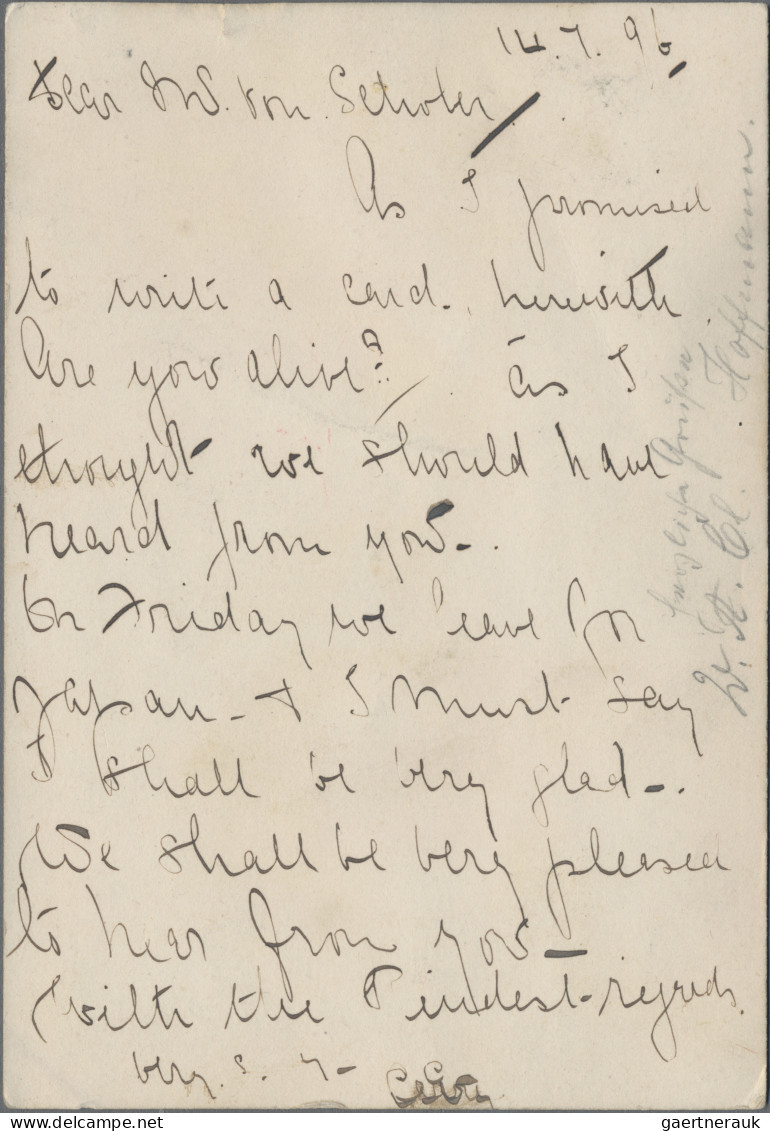 14.7.96
Dear Mr. von
As I promised
to write a card, herewith.
Are you alive? As I
thought we should have
heard from you.
On Friday we leave for
Japan - & I must say
I shall be very glad -.
We shall be very pleased
to hear from you -
With the kindest regards
very s. y -
Herzliche Grüße
Hoffmann.
gaertnerauk